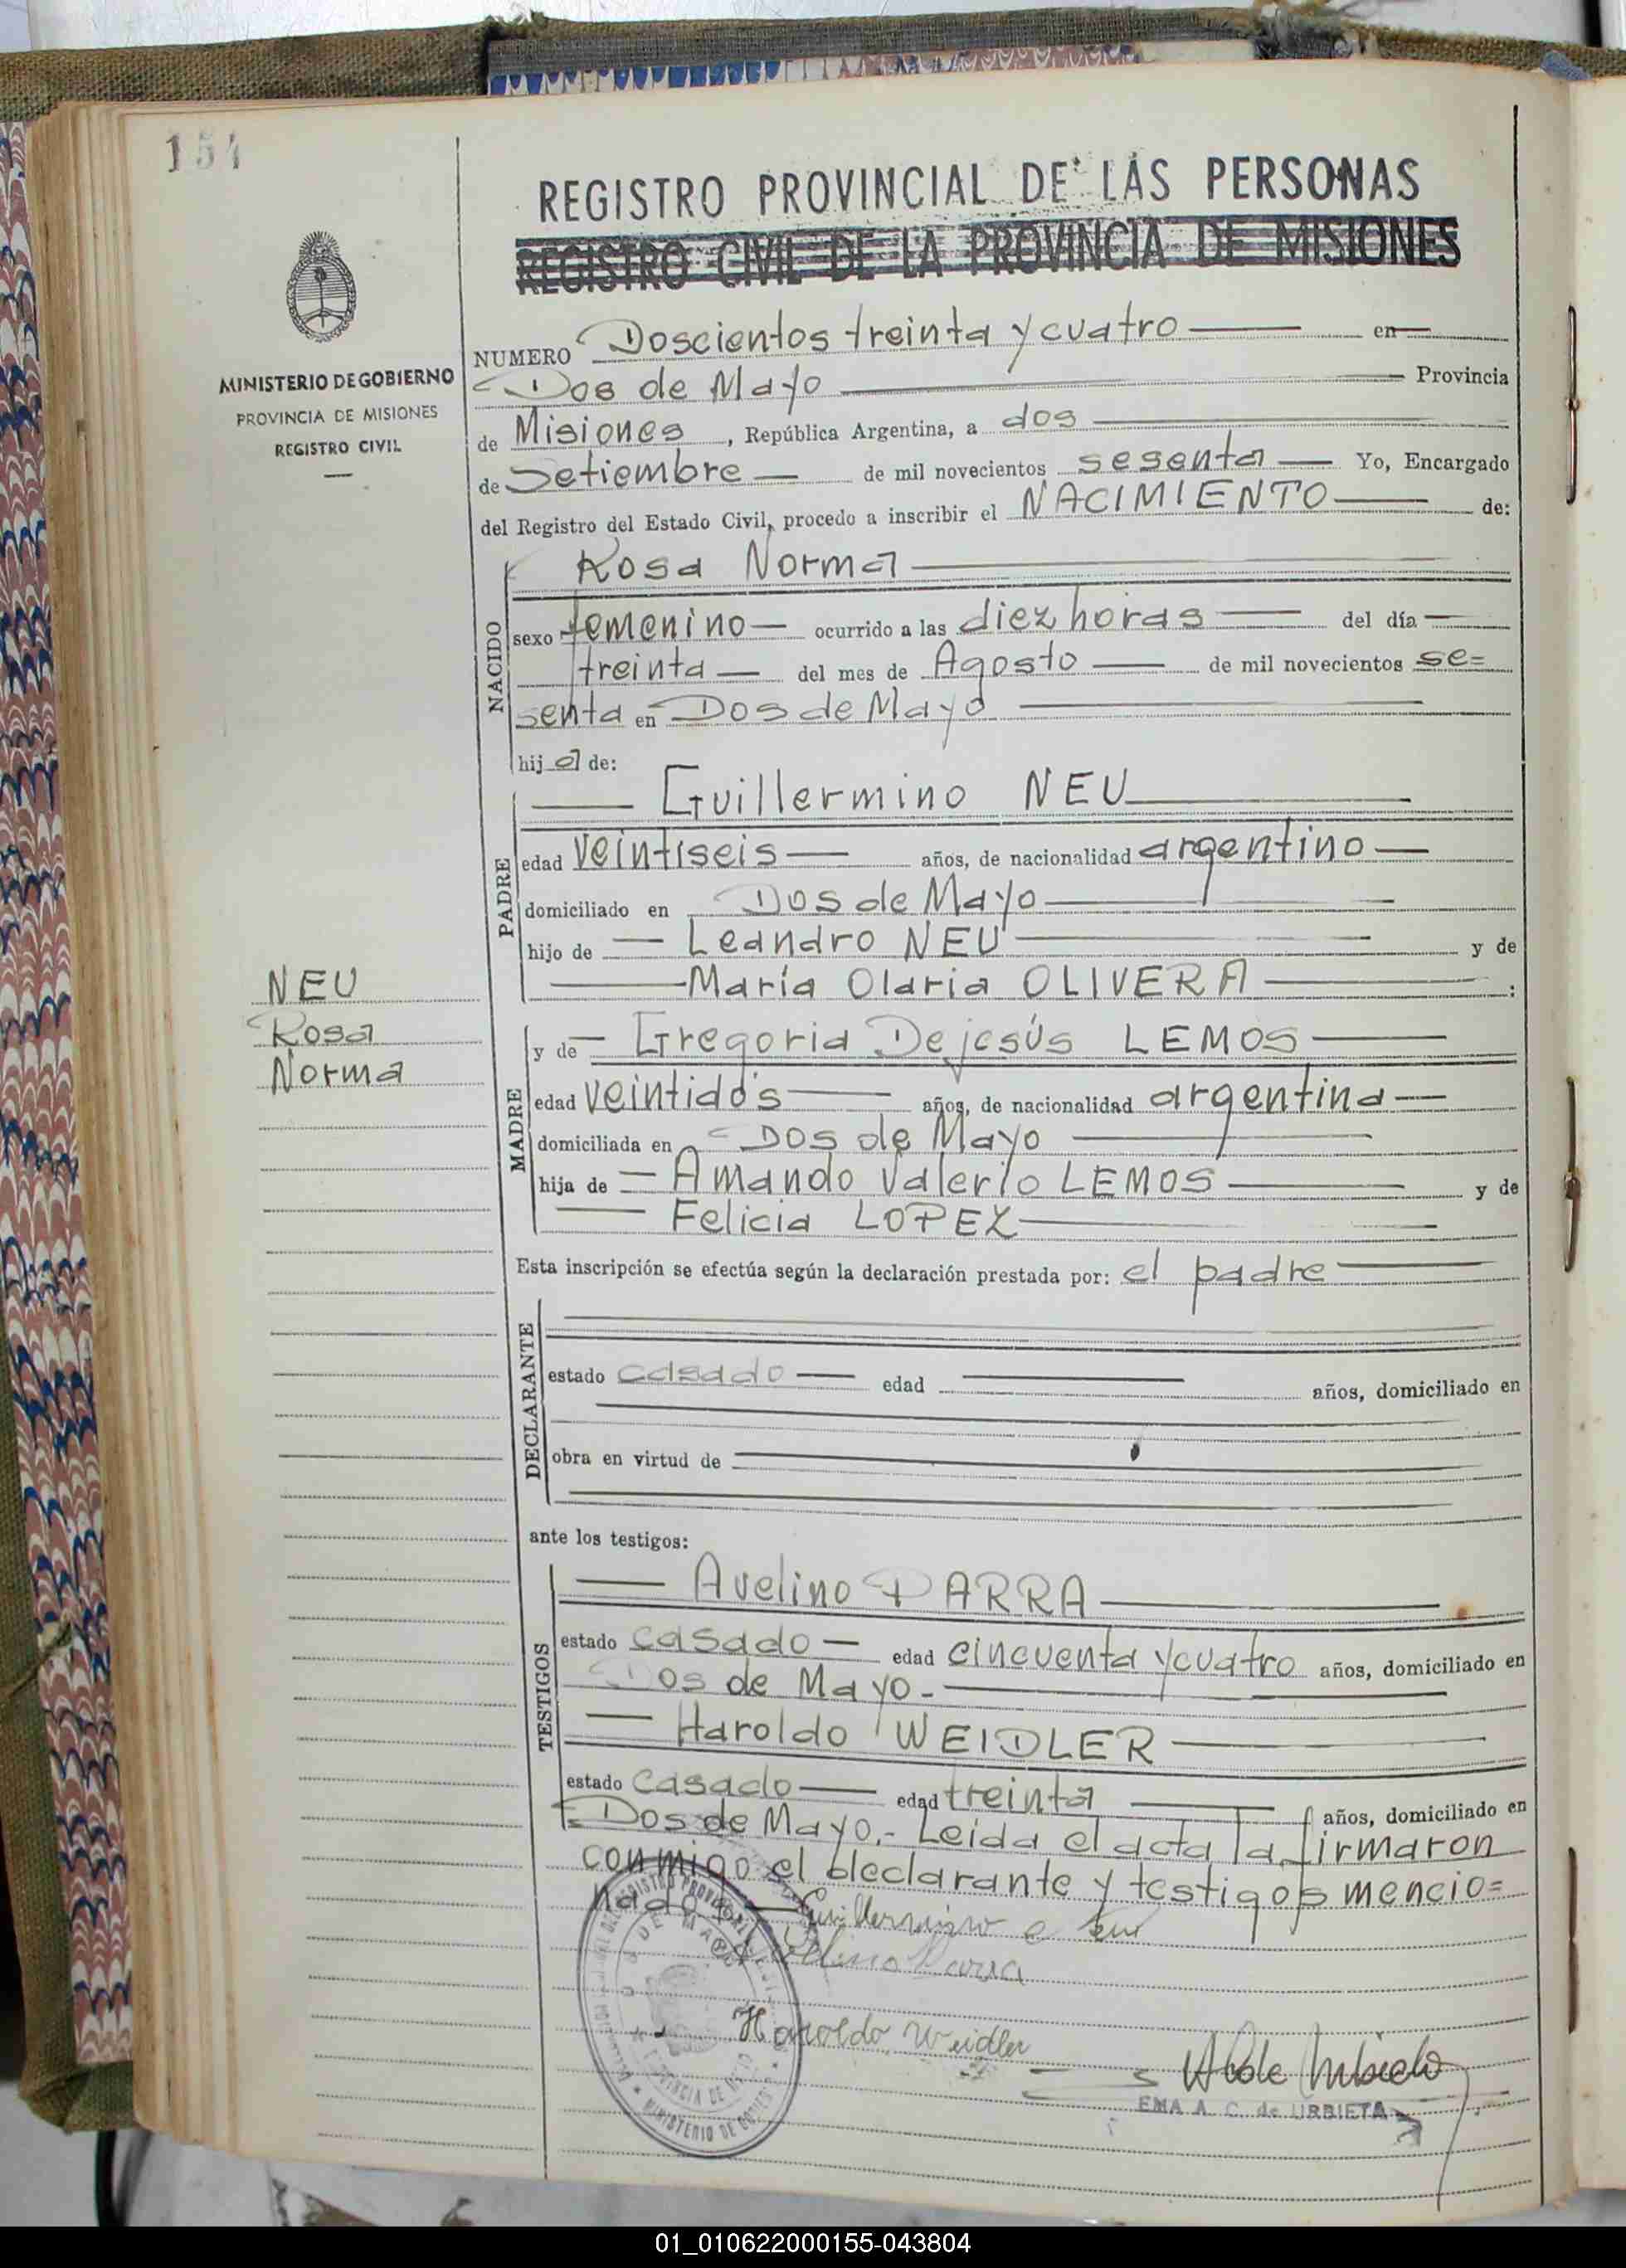 154
REGISTRO PROVINCIAL DE LAS PERSONAS
REGISTRO CIVIL DE LA PROVINCIA DE MISIONES
MINISTERIO DE GOBIERNO
PROVINCIA DE MISIONES
REGISTRO CIVIL
NUMERO Doscientos treinta y cuatro en
Dos de Mayo Provincia
de Misiones, República Argentina, a dos
de Setiembre de mil novecientos sesenta Yo, Encargado
del Registro del Estado Civil, procedo a inscribir el NACIMIENTO de:
NACIDO
Rosa Norma
sexo femenino ocurrido a las diez horas del día
treinta del mes de Agosto de mil novecientos se=
senta en Dos de Mayo
hija de:
PADRE
Guillermino NEU
edad veintiseis años, de nacionalidad argentino
domiciliado en Dos de Mayo
hijo de Leandro NEU y de
María Olaria OLIVERA :
NEU
Rosa
Norma
MADRE
y de Gregoria Dejesús LEMOS
edad veintidós años, de nacionalidad argentina
domiciliada en Dos de Mayo
hija de Amando Valerio LEMOS y de
Felicia LOPEZ
Esta inscripción se efectúa según la declaración prestada por: el padre
DECLARANTE
estado casado edad años, domiciliado en
obra en virtud de
ante los testigos:
TESTIGOS
Avelino PARRA
estado casado edad cincuenta y cuatro años, domiciliado en
Dos de Mayo.-
Haroldo WEIDLER
estado casado edad treinta años, domiciliado en
Dos de Mayo.- Leída el acta la firmaron
conmigo el declarante y testigos mencio=
nados
Guillermino Neu
Avelino Parra
Haroldo Weidler
EMA A. C. de URBIETA
MINISTERIO DE GOBIERNO
01_010622000155-043804